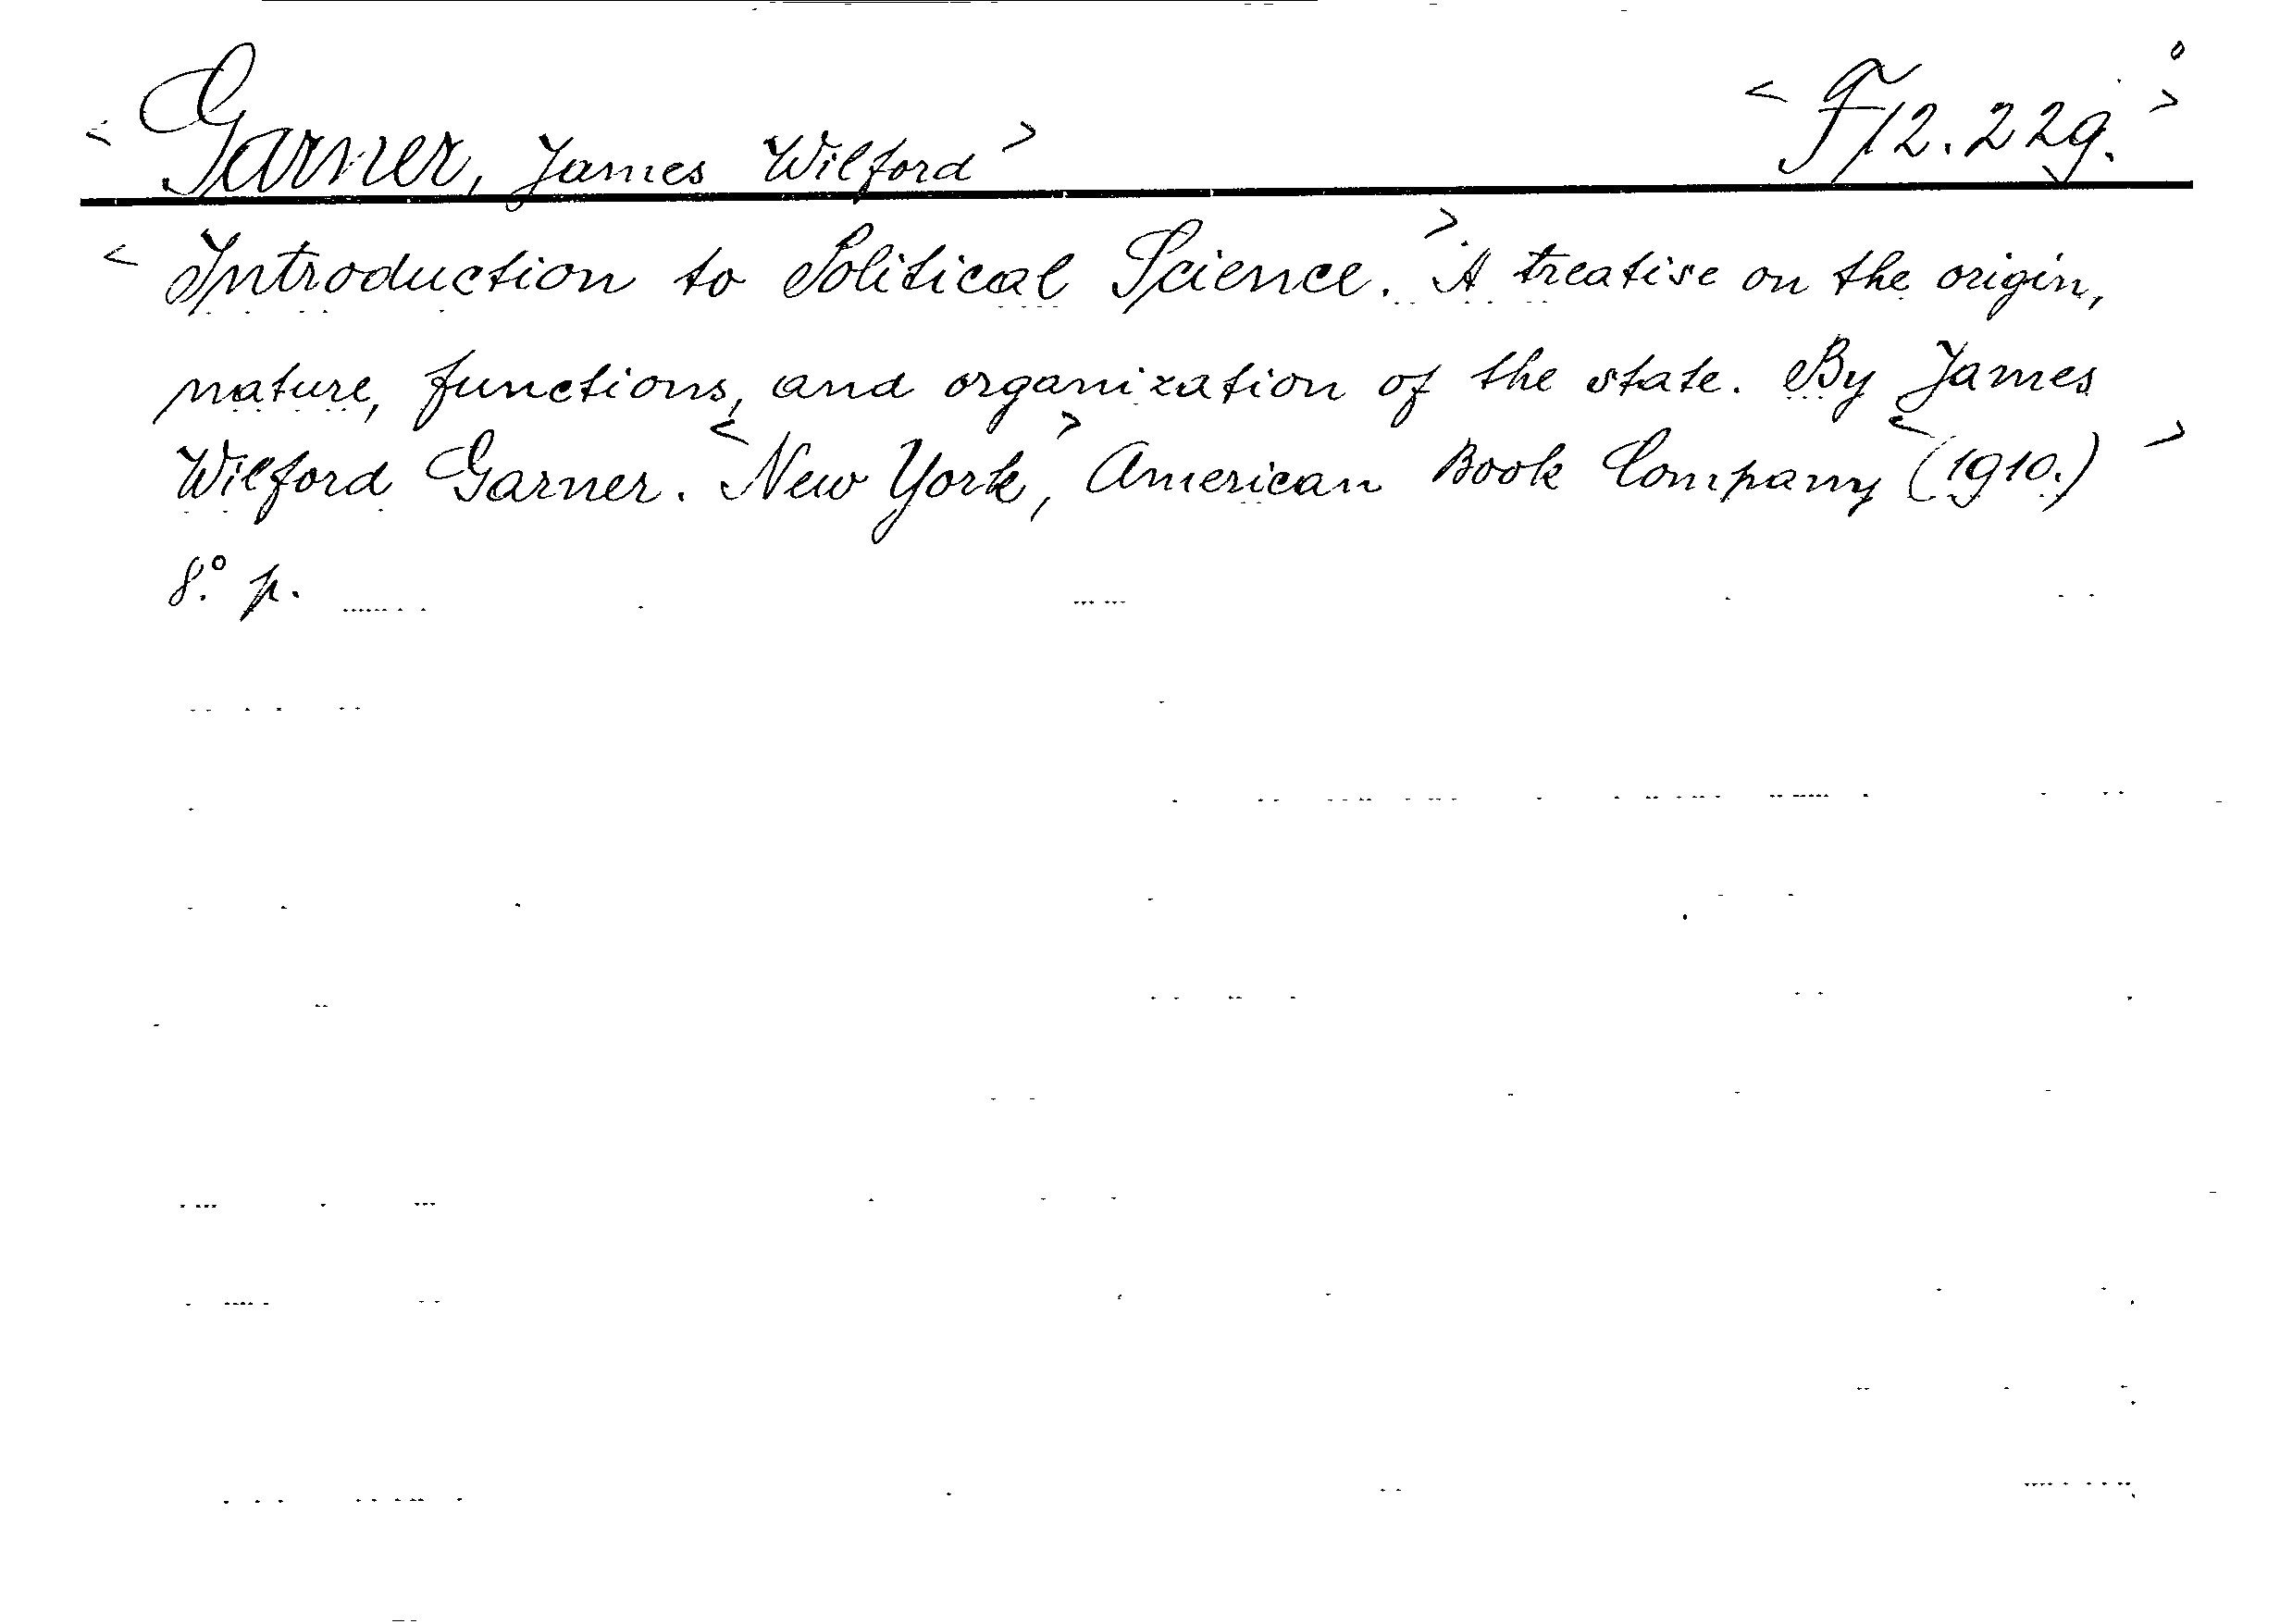 < Garner, James Wilford > < F12.229. >
< Introduction to Political Science. > A treatise on the origin,
nature, functions, and organization of the state. By James
Wilford Garner. < New York >, American Book Company < (1910.) >
8.° p.